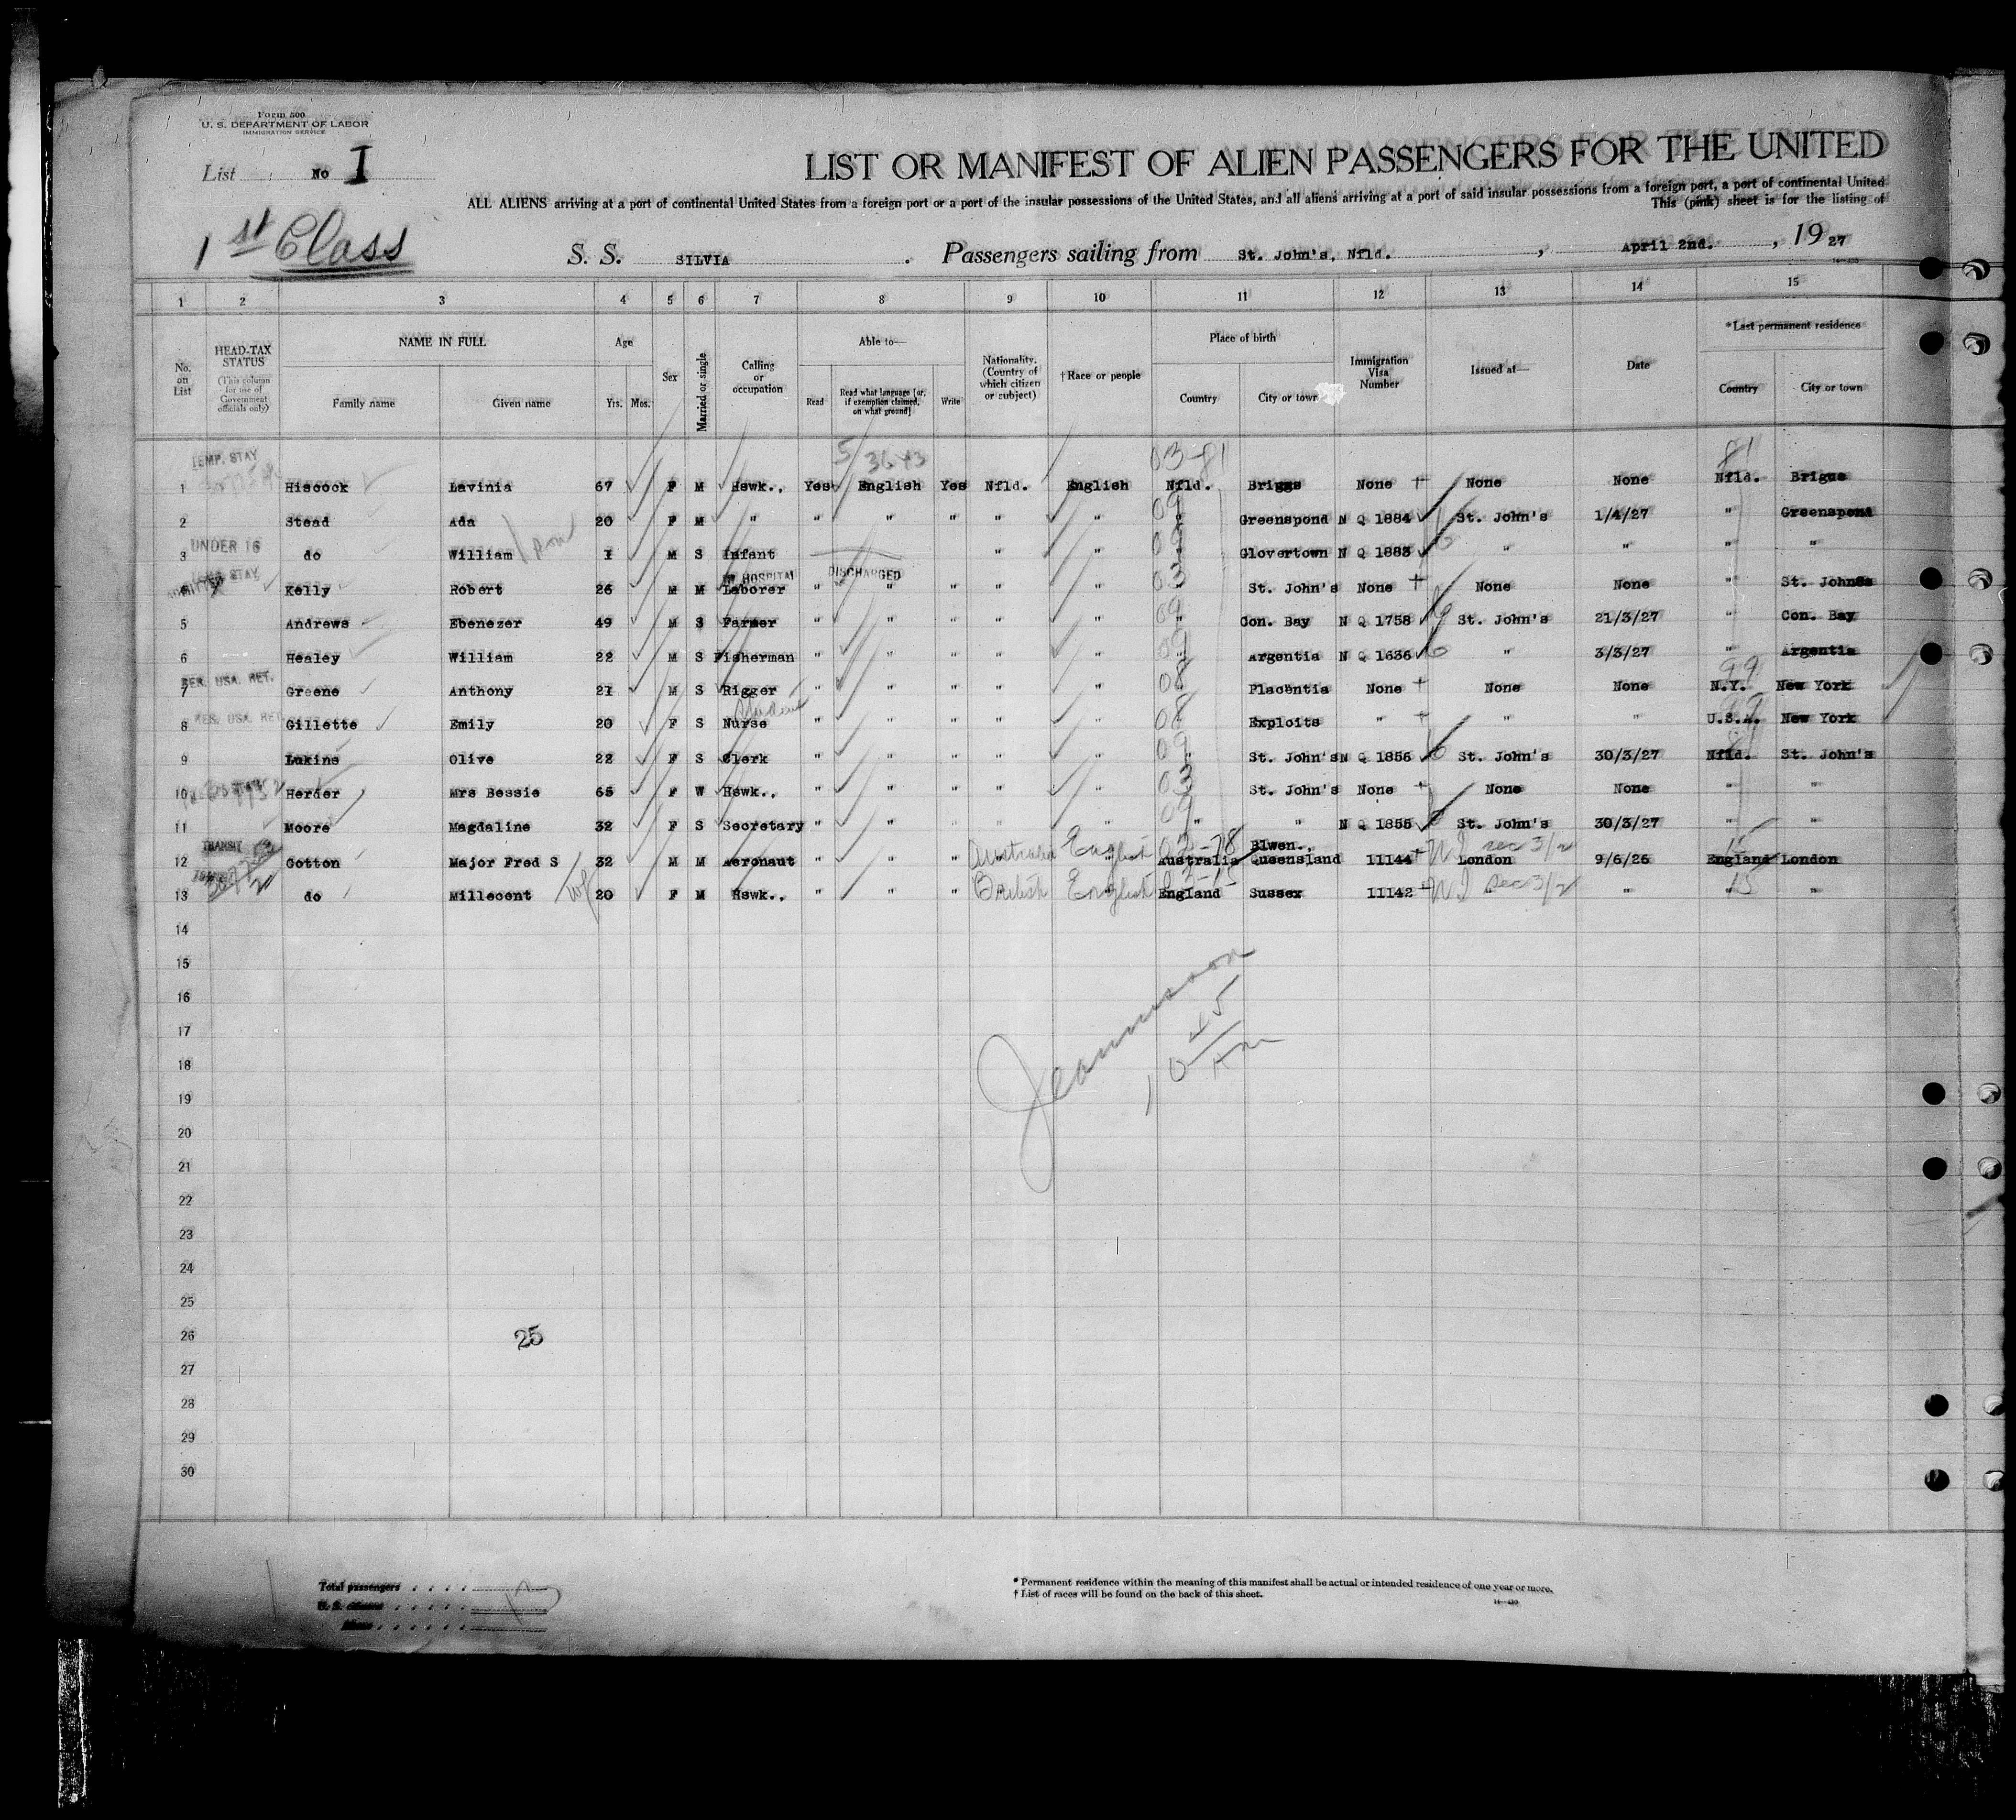 Form 500
U. S. DEPARTMENT OF LABOR
IMMIGRATION SERVICE
List No I
LIST OR MANIFEST OF ALIEN PASSENGERS FOR THE UNITED
ALL ALIENS arriving at a port of continental United States from a foreign port or a port of the insular possessions of the United States, and all aliens arriving at a port of said insular possessions from a foreign port, a port of continental United
This (pink) sheet is for the listing of
1st Class
S. S. SILVIA . Passengers sailing from St. John's, Nfld. , April 2nd. , 19 27
1 2 3 4 5 6 7 8 9 10 11 12 13 14 15
No. on List
HEAD-TAX STATUS (This column for use of Government officials only)
NAME IN FULL
Family name Given name
Age
Yrs. Mos.
Sex
Married or single
Calling or occupation
Able to—
Read Read what language [or, if exemption claimed, on what ground] Write
Nationality. (Country of which citizen or subject)
†Race or people
Place of birth
Country City or town
Immigration Visa Number
Issued at—
Date
*Last permanent residence
Country City or town
TEMP. STAY 5/3643 03-81 81
1 Hiscock Lavinia 67 F M Hswk., Yes English Yes Nfld. English Nfld. Briggs None None None Nfld. Brigus
2 Stead Ada 20 F M " " " " " " 09 " Greenspond N Q 1884 St. John's 1/4/27 " Greenspond
UNDER 16
3 do William son 1 M S Infant " " 09 " Glovertown N Q 1883 " " " "
IN HOSPITAL DISCHARGED
4 Kelly Robert 26 M M Laborer " " " " " 03 " St. John's None None None " St. Johns
5 Andrews Ebenezer 49 M S Farmer " " " " " 09 " Con. Bay N Q 1758 St. John's 21/3/27 " Con. Bay
6 Healey William 22 M S Fisherman " " " " " 09 " Argentia N Q 1636 " 3/3/27 " Argentia
RES. USA. RET. 99
7 Greene Anthony 21 M S Rigger " " " " " 08 " Placentia None None None N.Y. New York
RES. USA. RET. Student
8 Gillette Emily 20 F S Nurse " " " " " 08 " Exploits " " " U.S.A. New York
9 Lukins Olive 22 F S Clerk " " " " " 09 " St. John's N Q 1856 St. John's 30/3/27 Nfld. St. John's
10 Herder Mrs Bessie 65 F W Hswk., " " " " " 03 " St. John's None None None " "
11 Moore Magdaline 32 F S Secretary " " " " " 09 " " N Q 1855 St. John's 30/3/27 " "
TRANSIT Blwen.,
12 Cotton Major Fred S 32 M M Aeronaut " " " Australia English Australia Queensland 11144 London 9/6/26 England London
13 do Millecent wf 20 F M Hswk., " " " British English England Sussex 11142 " " "
14
15
16
17
18
19
20
21
22
23
24
25
26
27
28
29
30
10 45 AM
25
Total passengers
U. S. citizens
Aliens
* Permanent residence within the meaning of this manifest shall be actual or intended residence of one year or more.
† List of races will be found on the back of this sheet.